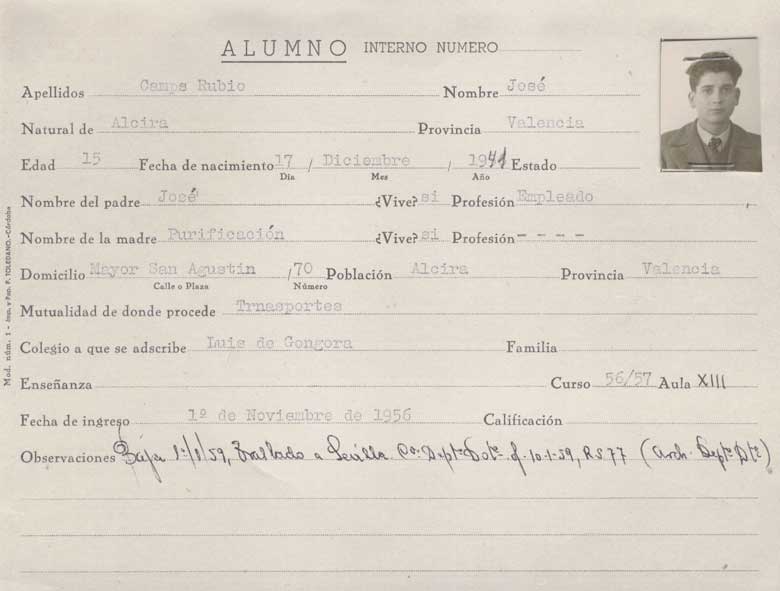 ALUMNO INTERNO NUMERO
Apellidos Camps Rubio Nombre José
Natural de Alcira Provincia Valencia
Edad 15 Fecha de nacimiento 17 / Diciembre / 1941 Estado
Día Mes Año
Nombre del padre José ¿Vive? si Profesión Empleado
Nombre de la madre Purificación ¿Vive? si Profesión - - - -
Domicilio Mayor San Agustin /70 Población Alcira Provincia Valencia
Calle o Plaza Número
Mutualidad de donde procede Trnasportes
Colegio a que se adscribe Luis de Gongora Familia
Enseñanza Curso 56/57 Aula XIII
Fecha de ingreso 1º de Noviembre de 1956 Calificación
Observaciones Baja 1º/1/59, Trallado a Sevilla. Cº. Deptº. 10-1-59, R.S. 77 (Arch. Deptº. Dtº.)
Mod. núm. 1 - Imp. y Pap. F. TOLEDANO.-Córdoba